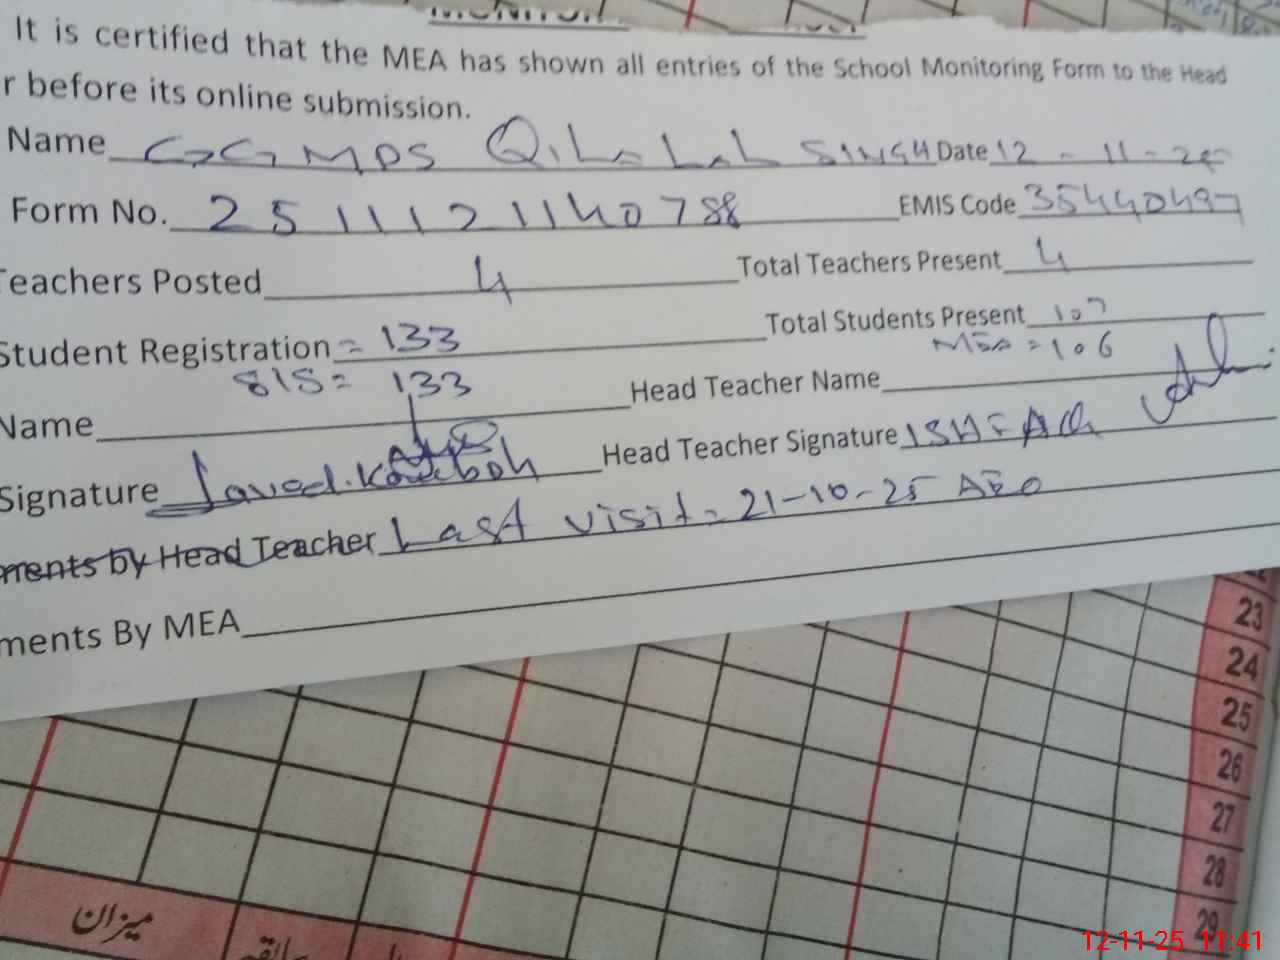 It is certified that the MEA has shown all entries of the School Monitoring Form to the Head
r before its online submission.
Name GGMPS Qila Lal SINGH Date 12-11-25
Form No. 25111211140788 EMIS Code 35440497
Teachers Posted 4 Total Teachers Present 4
Student Registration = 133 Total Students Present 107
SIS = 133 MEA = 106
Name Head Teacher Name
Signature Head Teacher Signature ISHFAQ
ments by Head Teacher Last visit = 21-10-25 AEO
ments By MEA
23
24
25
26
27
28
29
میزان
12-11-25 11:41